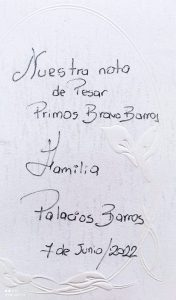 Nuestra nota
de Pesar
Primos Bravo Barros
Familia
Palacios Barros
7 de Junio/2022